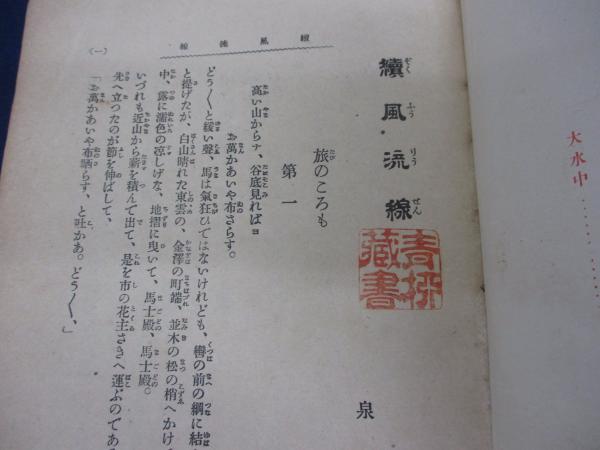 大水中
續風流線
ぞく ふう りう せん
青柳藏書
泉
旅のころも
たび
第一
高い山からナ、谷底見ればヨ
お萬かあいや布さらす。
どう〱と緩い聲、馬は氣狂ひではないけれども、轡の前の綱に結
と提げたが、白山晴れた東雲の、金澤の町端、並木の松の梢へかけ
中、露に濡色の凉しげな、地摺に曳いて、馬士殿、馬士殿。
いづれも近山から薪を積んで出て、是を市の花主さきへ運ぶのである
先へ立つたのが節を伸ばして、
「お萬かあいや布晒らす、と吐かあ。どう〱、」
續風流線
(一)